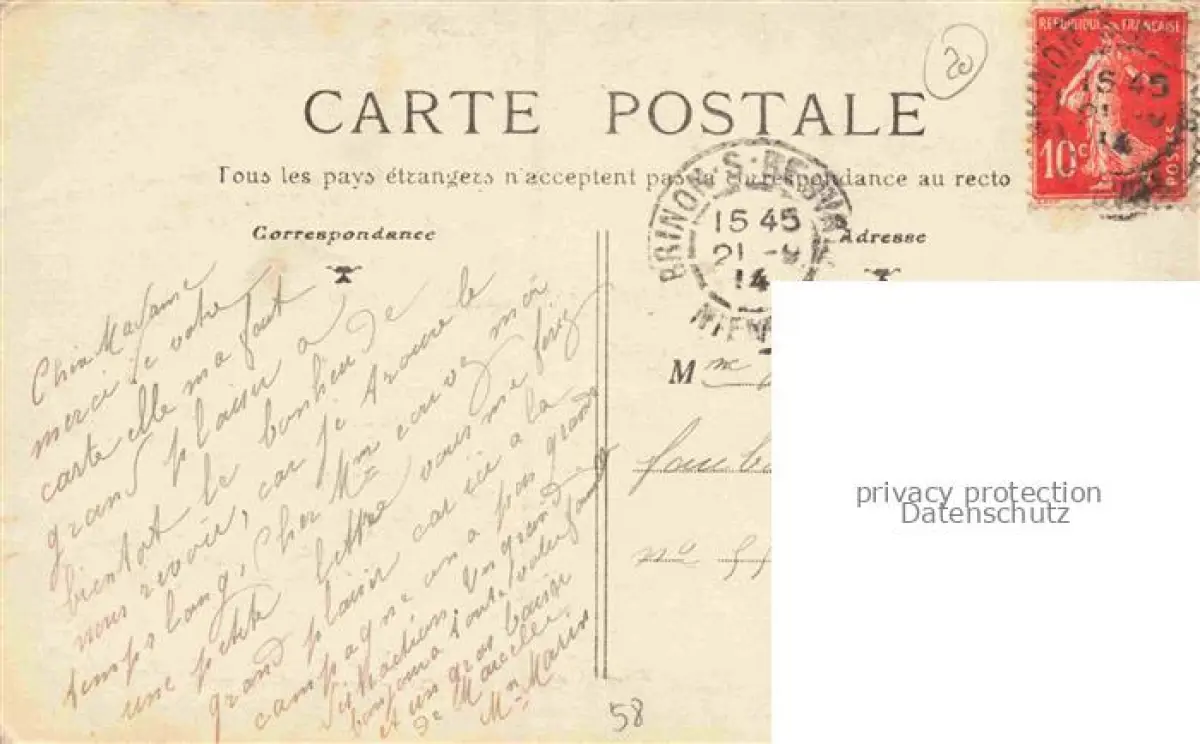 20
RÉPUBLIQUE FRANÇAISE
10c POSTES
15 45
21
14
CARTE POSTALE
Tous les pays étrangers n'acceptent pas la correspondance au recto
BRINON-S-BEUVRON
15 45
21
14
NIEV
Correspondance
Chèr Madame
merci de votre
carte elle m'a fait
grand plaisir a
bientot le bonheur de
nous revoir, car je trouve le
temps long, Cher Mme envoyez moi
une petite lettre vous me feriez
grand plaisir car ici à la
campagne on a pas grande
distraction. Un grand
bonjour a toute votre famille
et un gros baiser
de Marcelle
Mme Marin
Adresse
Mme
Faub
no 55
58
privacy protection
Datenschutz